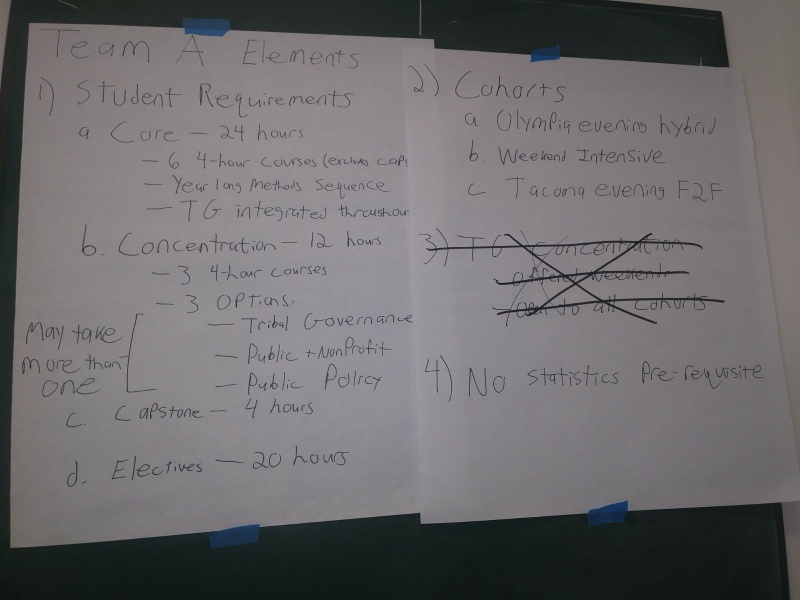 Team A Elements
1) Student Requirements
a Core — 24 hours
— 6 4-hour courses (excludes caps
— Year long Methods Sequence
— TG integrated throughou
b. Concentration — 12 hours
— 3 4-hour courses
— 3 Options:
— Tribal Governance
— Public + NonProfit
— Public Policy
May take
more than
one
c. Capstone — 4 hours
d. Electives — 20 hours
2) Cohorts
a Olympia evening hybrid
b. Weekend Intensive
c Tacoma evening F2F
3) TG Concentration
- offered weekends
- open to all cohorts
4) No statistics Pre-requisite